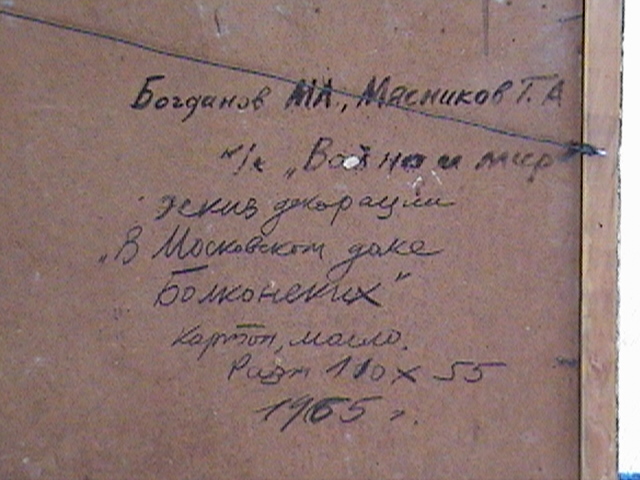 Богданов М.А., Мясников Г.А
к/к „Война и мир
эскиз декорации
„В Московском доме
Болконских"
Картон, масло.
Разм 110 x 55
1965 г.